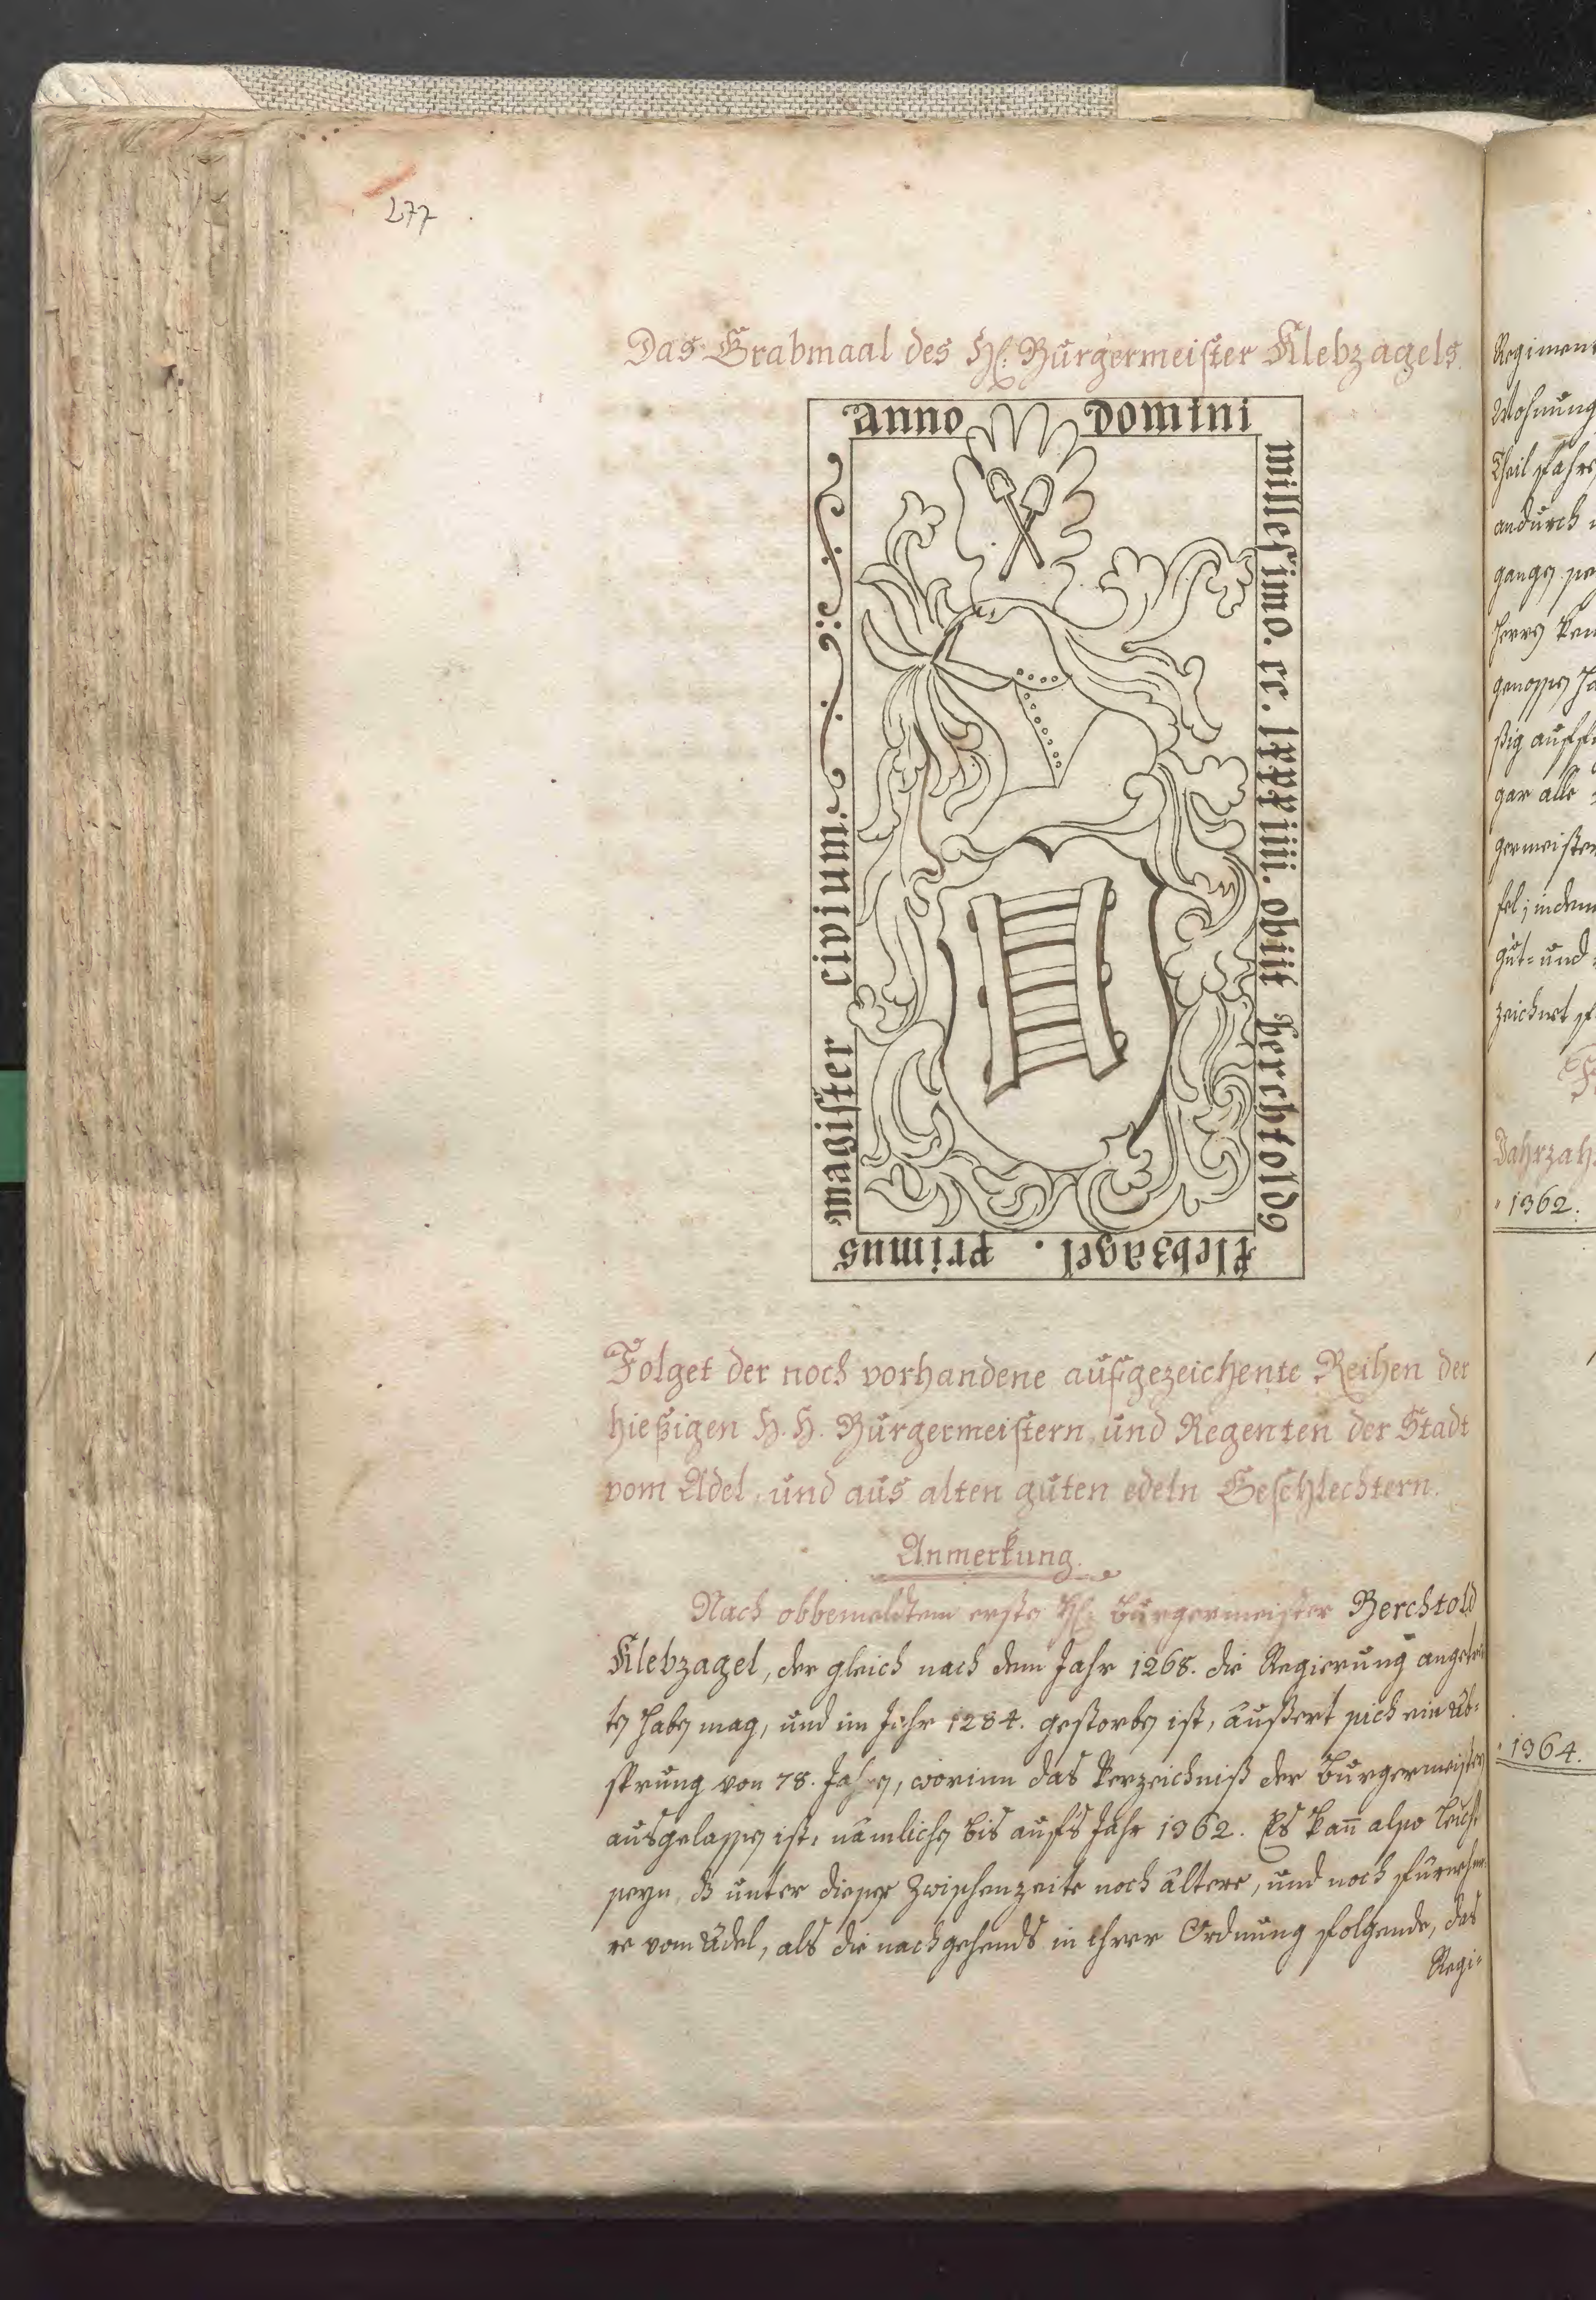 277
Das Grabmaal des H: Burgermeister Klebzagels.
anno domini
millesimo. cc. lxxxiiii. obiit berchtold9
klebzagel. primus
magister civium.
Folget der noch vorhandene aufgezeichente Reihen der
hießigen H. H. Burgermeistern, und Regenten der Stadt
vom Adel, und aus alten guten edeln Geschlechtern.
Anmerkung.
Nach obbemeldtem erste H: Burgermeister Berchtold
Klebzagel, der gleich nach dem Jahr 1268. die Regierung angetret-
ten haben mag, und im Jahr 1284. gestorben ist, äußert sich ein Ab-
sprung von 78. Jahren, worinn das Verzeichniß der Burgermeister
ausgelassen ist, nämlichen bis aufs Jahr 1362. Es kañ also leicht
seyn, dz unter dieser Zwischenzeite noch ältere, und noch fürnehme-
re vom Adel, als die nachgehends in ihrer Ordnung folgende, das
Regi-
Regiment
Wohnung
Theil
andurch
gar alle
germeister
gut- und
zeichnet
Jahrzah
1362.
1364.